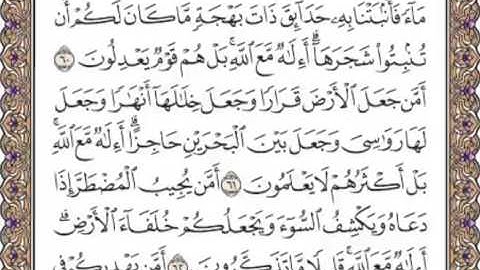 مَآءً فَأَنۢبَتْنَا بِهِۦ حَدَآئِقَ ذَاتَ بَهْجَةٍ مَّا كَانَ لَكُمْ أَن
تُنۢبِتُوا۟ شَجَرَهَآ ۗ أَءِلَٰهٌ مَّعَ ٱللَّهِ ۚ بَلْ هُمْ قَوْمٌ يَعْدِلُونَ ٦٠
أَمَّن جَعَلَ ٱلْأَرْضَ قَرَارًا وَجَعَلَ خِلَٰلَهَآ أَنْهَٰرًا وَجَعَلَ
لَهَا رَوَٰسِىَ وَجَعَلَ بَيْنَ ٱلْبَحْرَيْنِ حَاجِزًا ۗ أَءِلَٰهٌ مَّعَ ٱللَّهِ ۚ
بَلْ أَكْثَرُهُمْ لَا يَعْلَمُونَ ٦١ أَمَّن يُجِيبُ ٱلْمُضْطَرَّ إِذَا
دَعَاهُ وَيَكْشِفُ ٱلسُّوٓءَ وَيَجْعَلُكُمْ خُلَفَآءَ ٱلْأَرْضِ ۗ
أَءِلَٰهٌ مَّعَ ٱللَّهِ ۚ قَلِيلًا مَّا تَذَكَّرُونَ ٦٢ أَمَّن يَهْدِيكُمْ فِى